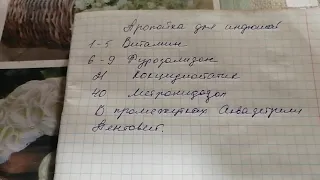 Пропойка для индюков
1-5 Витамин
6-9 Фурозолидон
21 Кокцидиостатик
40 Метронидазол
В промежутках Аквадетрим
Пентовет.